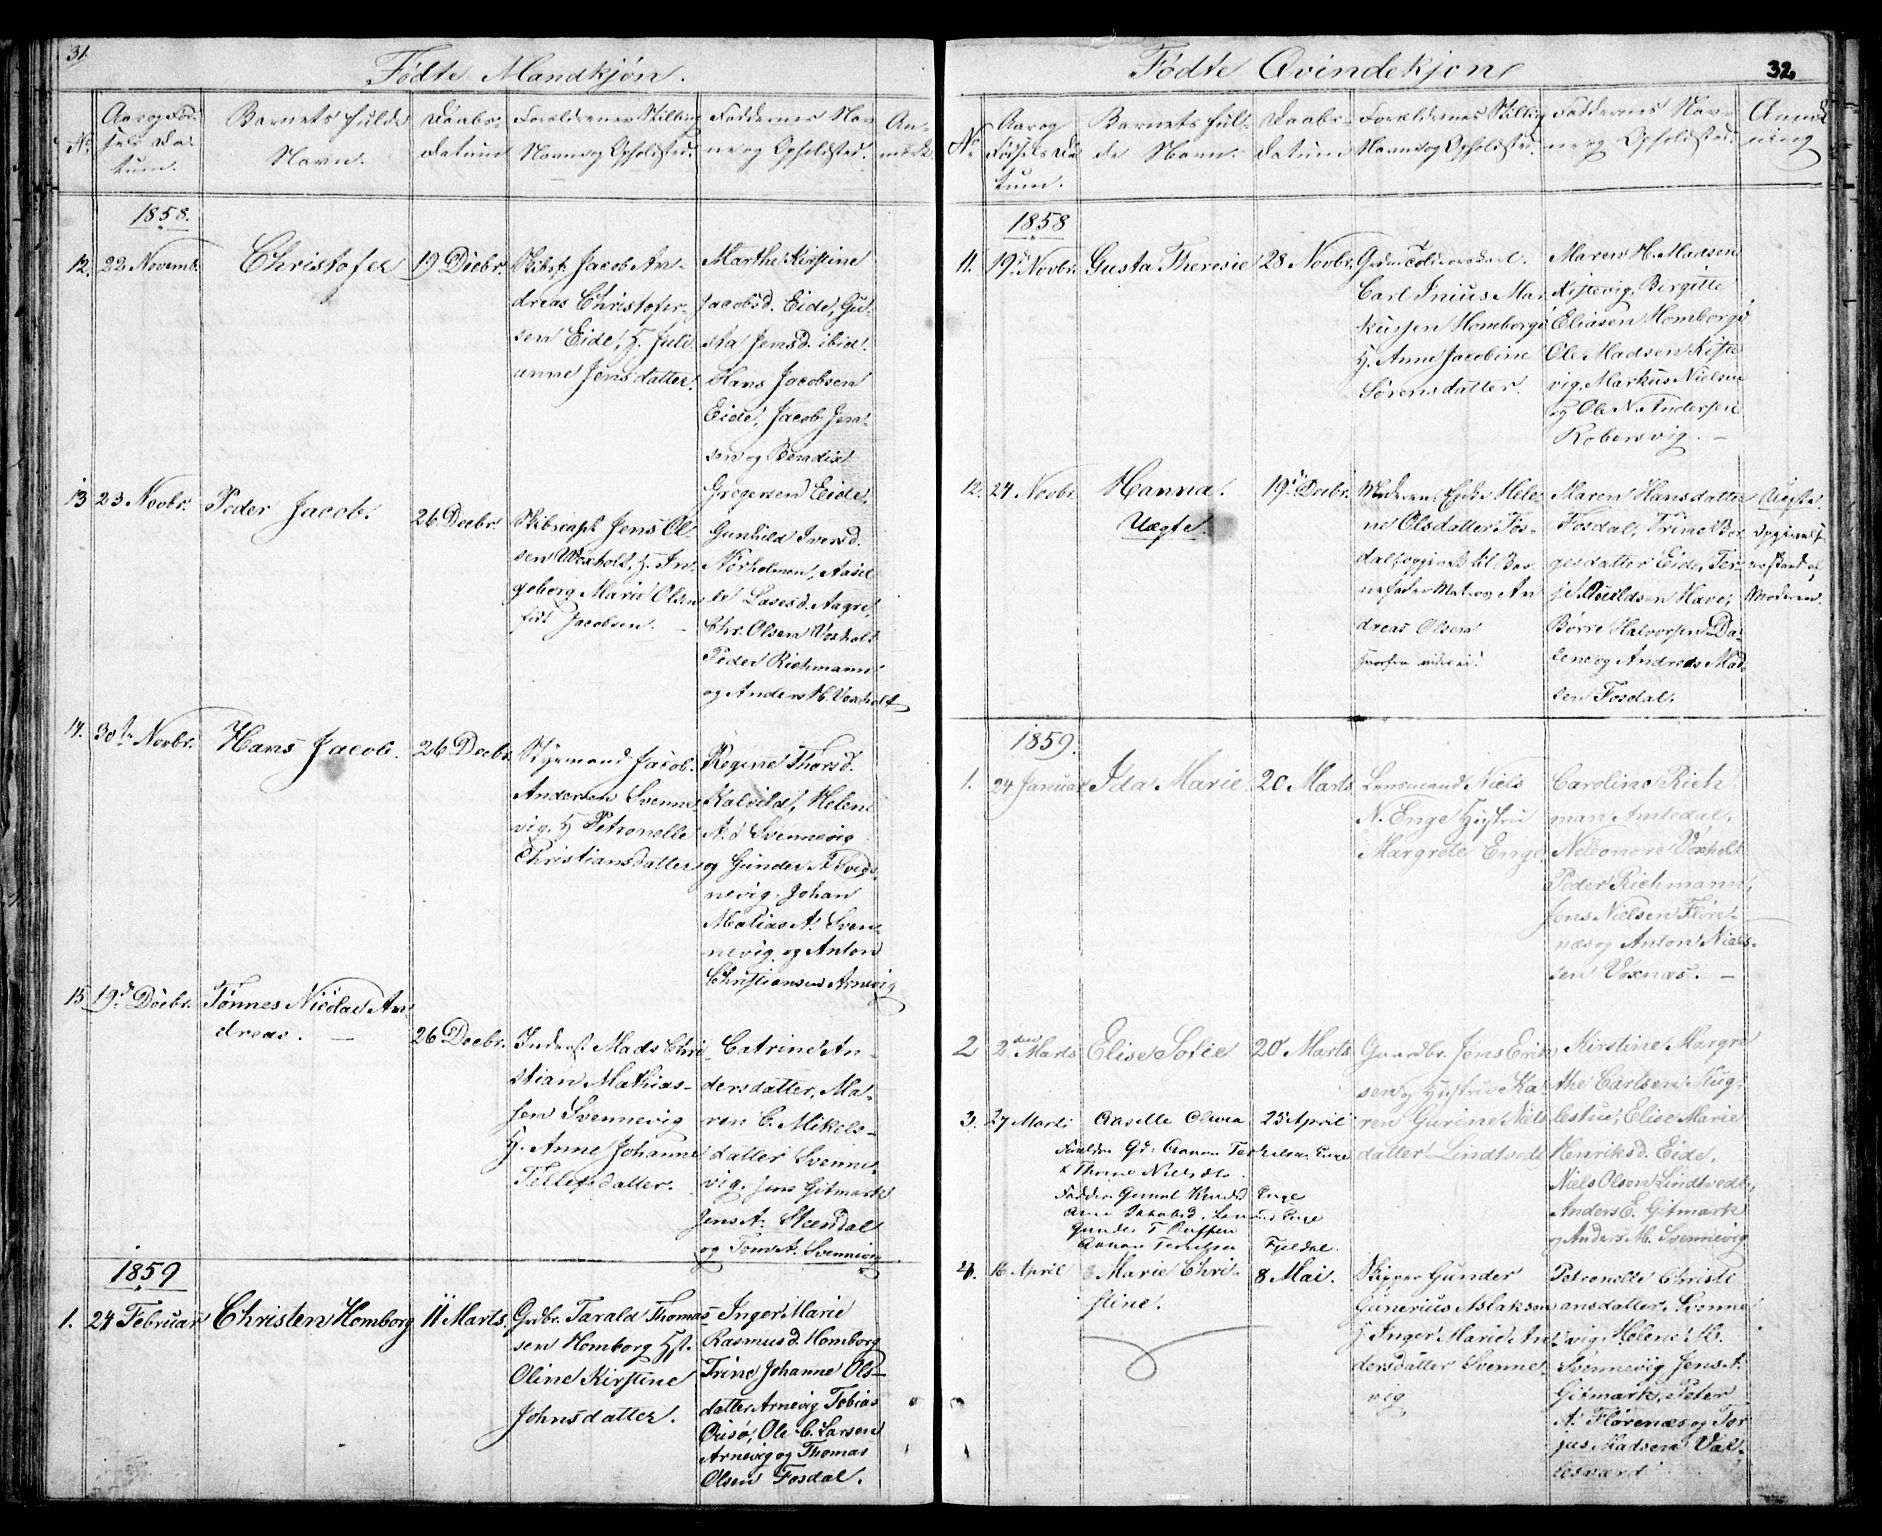 31.
Fødte Mandkjøn.
No.
Aar og Fød-
sels Da-
tum.
Barnets fulde
Navn.
Daabs-
datum
Forældrenes Stilling
Navn og Opholdsted.
Faddernes Nav
ne og Opholdsted.
An-
mærk
1858.
12.
22 Novemb.
Christofer
19 Decbr.
Skibsf. Jacob An-
dreas Christofer-
sen Eide, H. Juli-
anne Jensdatter.
Marthe Kirstine
Jacobsd. Eide, Gu-
sta Jensd. ibid.
Hans Jacobsen
Eide, Jacob Jen-
sen og Bendix
Gregersen Eide.
13
23 Novbr.
Peder Jacob.
26 Decbr.
Skibscapt. Jens Ol-
sen Voxholt, H. In-
geborg Marie Olsen
født Jacobsen.
Gunhild Iversd.
Nørholmen, Aasel-
le Lasesd. Aagre,
Chr. Olsen Voxholt
Peder Richmann
og Anders H. Voxholt
14.
30te Novbr.
Hans Jacob.
26 Decbr.
Styrmand Jacob
Andersen Svenne-
vig, H. Petronelle
Christiansdatter
Regine Thorsd.
Kalvild, Helene
A.d. Svennevig
og Gunder A. Sven-
nevig, Johan
Matias A. Sven-
nevig og Anton
Christiansen Arnevig
15
19de Decbr.
Tønnes Nicolai An-
dreas.
26 Decbr.
Inderst Mads Chri-
stian Mathias-
sen Svennevig
H. Anne Johanne
Tellefsdatter.
Catrine An-
dersdatter, Ma-
ren C. Mikels-
datter Svenne-
vig, Jens Gitmark
Jens A. Steendal
og Tom A. Svennevig
1859
1.
24 Februar
Christen Homborg
11 Marts.
Grdbr. Tarald Thomas-
sen Homborg Hst.
Oline Kirstine
Johnsdatter.
Inger Marie
Rasmusd. Homborg
Trine Johanne Ols-
datter Arnevig Tobias
Ole C. Larsen
Arnevig og Thomas
Olsen Fosdal.
Fødte Qvindekjøn
32.
No.
Aar og
Fødsels Da
tum.
Barnets ful-
de Navn.
Daabs-
datum
Forældrenes Stilling
Navn og Opholdsted.
Faddernes Nav-
ne og Opholdsted.
Anmærk
ning
1858
11.
19de Novbr.
Gusta Theresie
28 Novbr.
Carl Inius Mar-
kussen Homborg
H. Anne Jacobine
Sørensdatter.
Maren H. Madsen
Kistevig, Birgitte
Eliasen Homborg
Ole Madsen Kiste
vig, Markus Nielsen
og Ole N. Andersen
Kobervig.
12.
24 Novbr.
Hanna.
Uægte.
19. Decbr.
Moderen: Enke Hele-
ne Olsdatter Fos-
dal, opgivet til Bar-
nefader Matros An
dreas Olsen
Maren Hansdatter
Fosdal, Trine Bør
gesdatter Eide, Ter-
Have,
Børre Halvorsen Da-
lene og Andreas Mad-
sen Fosdal.
Uægte
Moderen.
1859.
1.
24 Januar
Ida Marie
20 Marts
Lensmand Niels
N. Enge Hustru
Margrete Enge
Caroline Rich
man Amtedal,
Neleonore Voxholt
Peder Richmann,
Jens Nielsen Fløre-
næs og Anton Niel-
sen Voxnæs.
2
2den Marts
Elise Sofie
20 Marts
Gaardbr. Jens Erik
sen og Hustru Ka-
ren Gurine Niels
datter Lindtvedt
Kirstine Margre
the Carlsen Skug-
lestue, Elise Marie
Henriksd. Eide,
Niels Olsen Lindtvedt
Anders E. Gitmark
og Anders M. Svennevig
3.
27 Marts
Aaselle Olevia
25 April
Forældre Gd. Aanon Terkelsen Enge
& Thrine Nielsdtr.
Fadder: Gunil Knudsd Enge
Gunder T
Aanon Terkelsen Fjeldal.
4.
16 April
Marie Chri-
stine.
8 Mai.
Skipper Gunder
Gunerius Aslaksen
H. Inger Marie An
dersdatter Svenne-
vig
Petronelle Christi
ansdatter Svenne-
vig, Helene M.
Svennevig Jens A.
Gitmark, Peter
A. Florenæs og Ter
jus Madsen Val-
lesværd